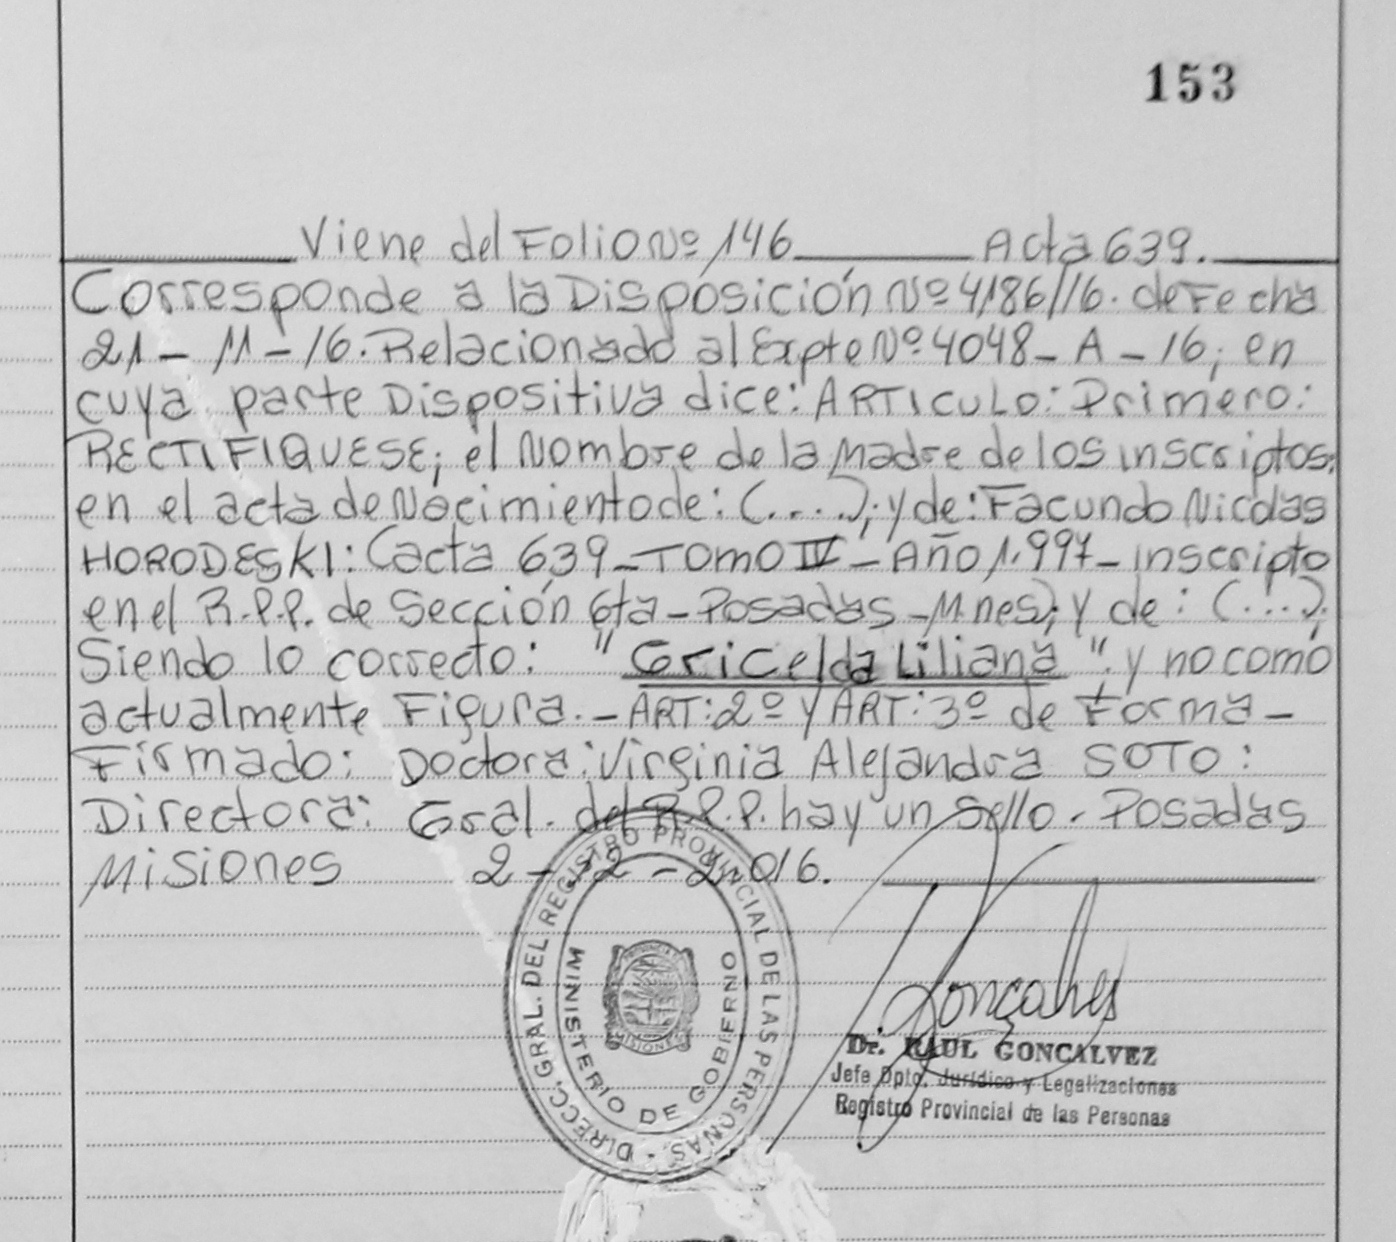 153
Viene del Folio Nº 146 Acta 639.
Corresponde a la Disposición Nº 4186/16. de Fecha
21-11-16. Relacionado al Expte Nº 4048-A-16; en
cuya parte Dispositiva dice: ARTICULO: Primero:
RECTIFIQUESE; el Nombre de la Madre de los inscriptos;
en el acta de Nacimiento de: (....); y de: Facundo Nicolas
HORODESKI: (acta 639-TOMO IV-Año 1.997-inscripto
en el R.P.P. de Sección 6ta-Posadas-Mnes); y de: (...).
Siendo lo correcto: "Gricelda Liliana". y no como
actualmente Figura.-ART:2º Y ART:3º de Forma-
Firmado: Doctora: Virginia Alejandra SOTO:
Directora: Gral. del R.P.P. hay un Sello. Posadas
Misiones 2-12-2.016.
DIRECC. GRAL. DEL REGISTRO PROVINCIAL DE LAS PERSONAS.
MINISTERIO DE GOBIERNO
MISIONES
Goncalves
Dr. RAUL GONCALVEZ
Jefe Dpto. Jurídico y Legalizaciones
Registro Provincial de las Personas